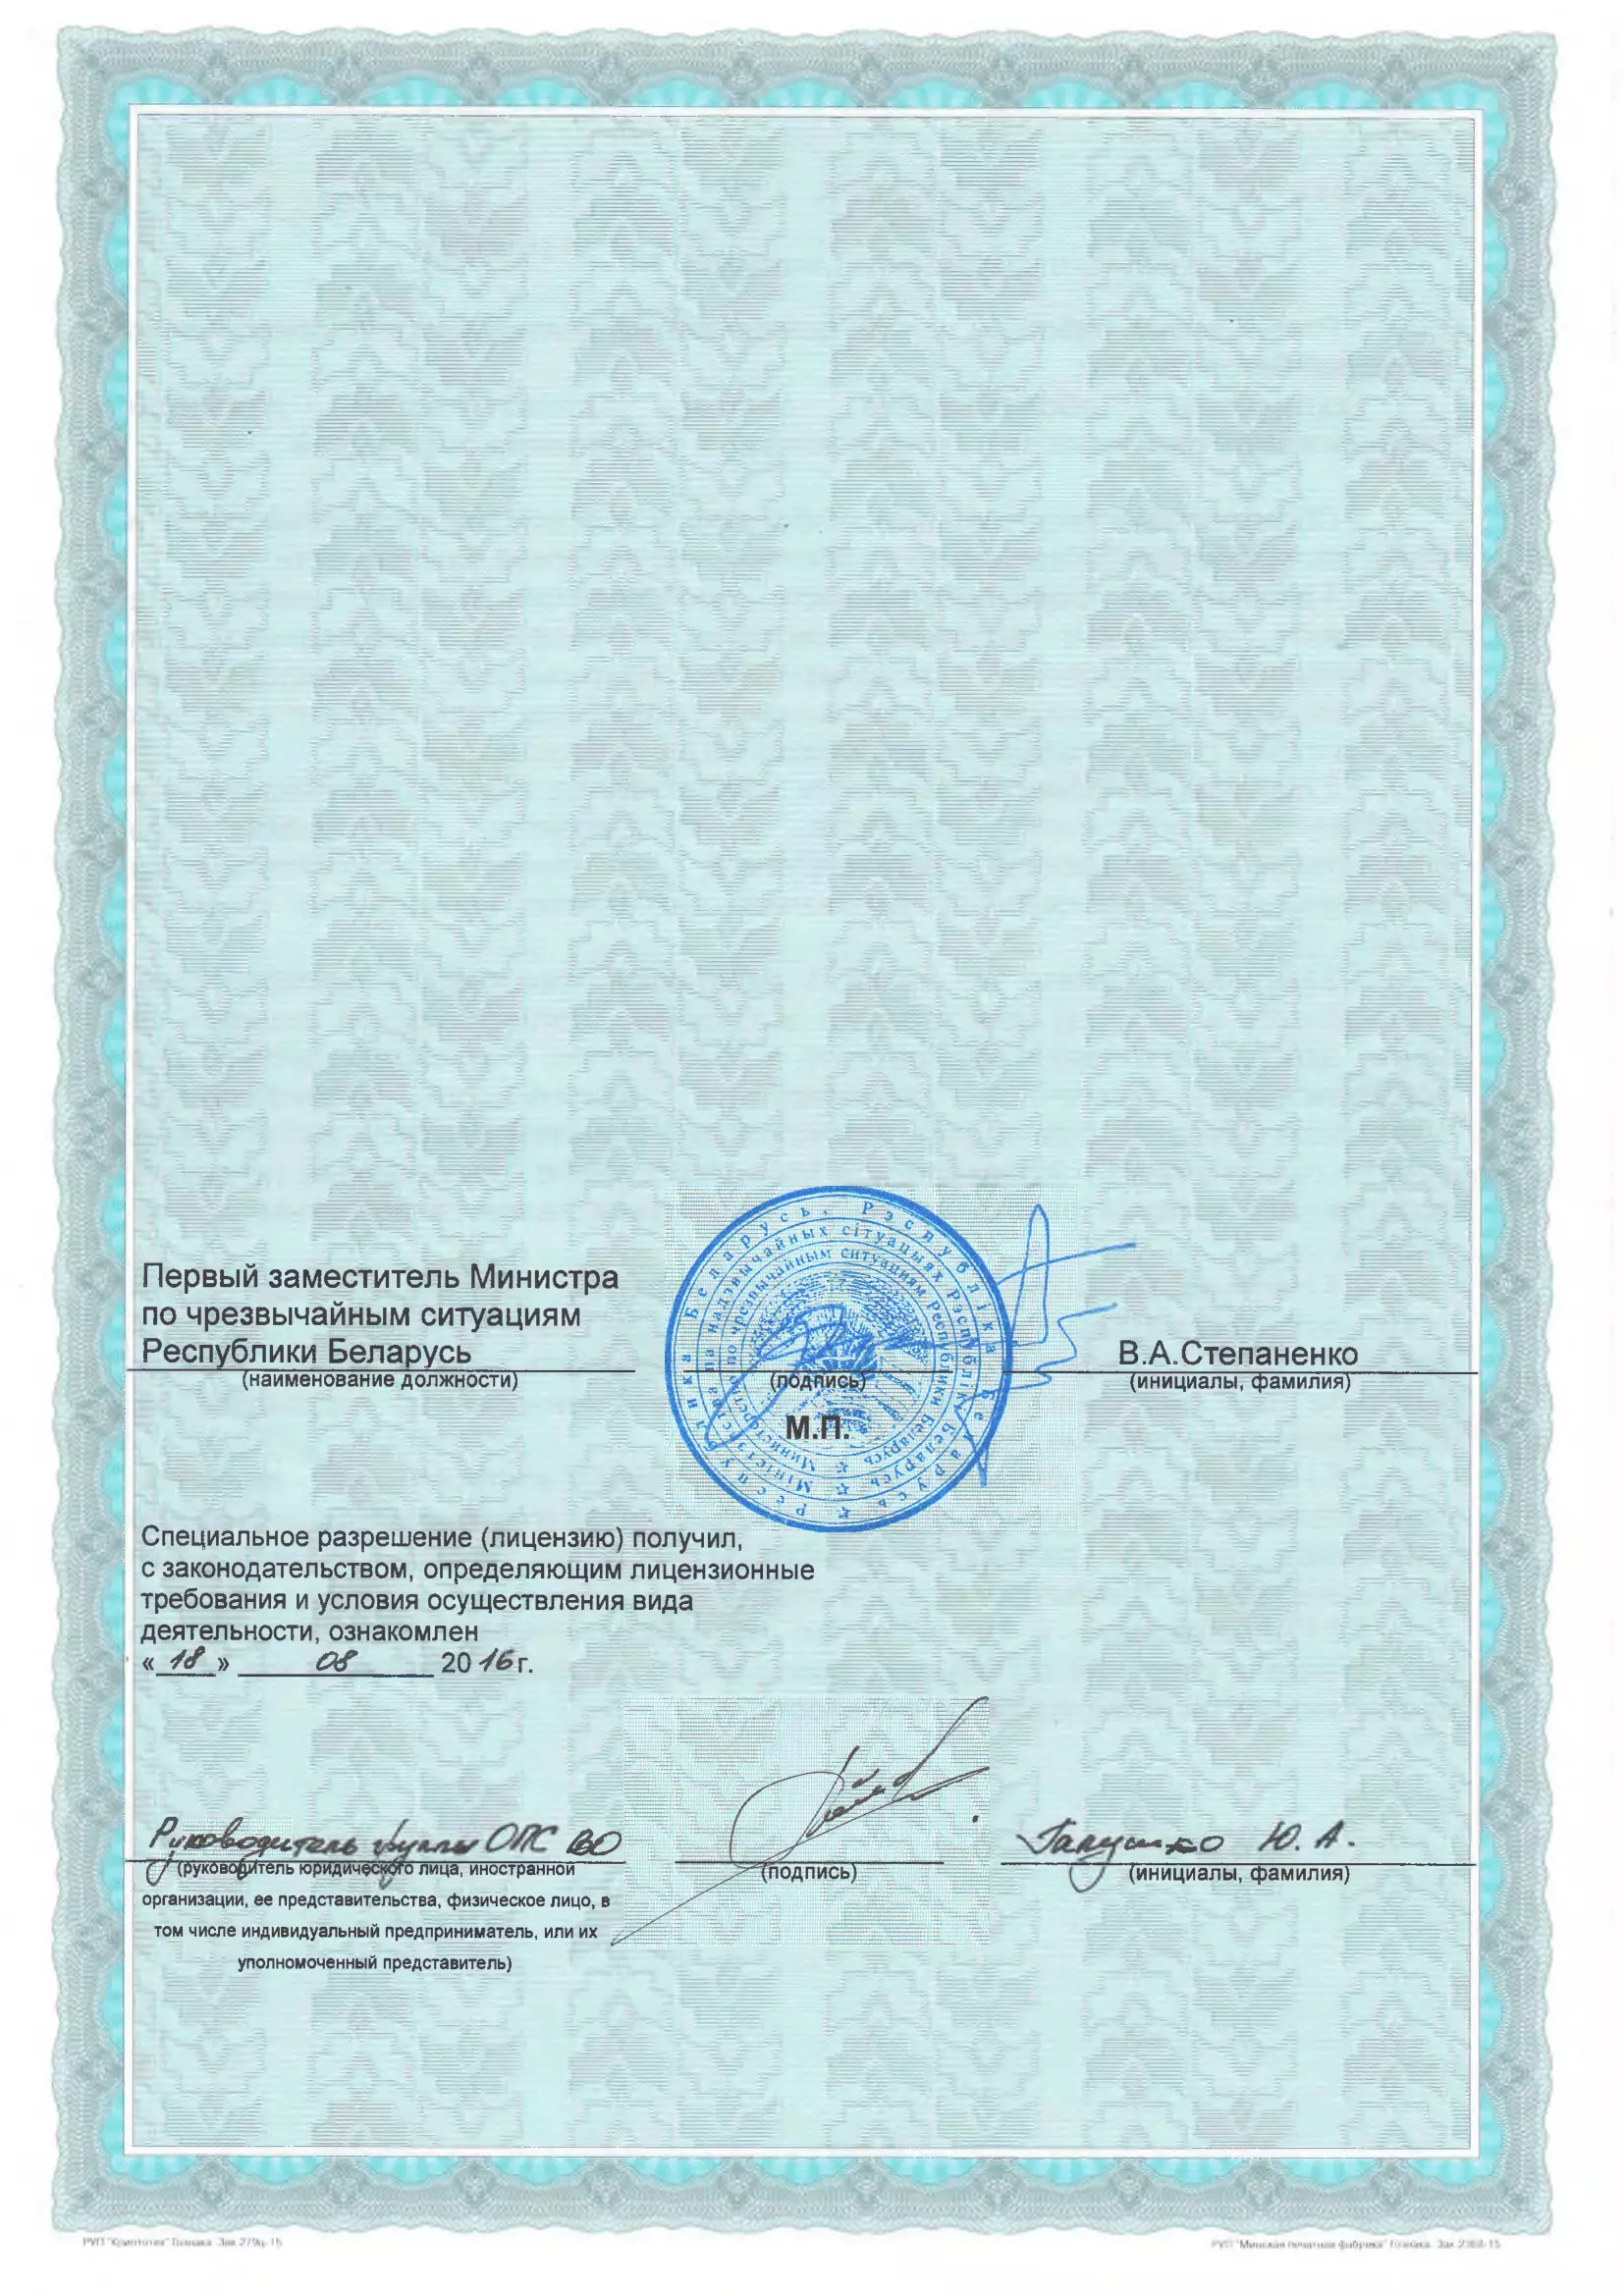 Первый заместитель Министра
по чрезвычайным ситуациям
Республики Беларусь
(наименование должности)
(подпись)
В.А.Степаненко
(инициалы, фамилия)
М.П.
Рэспубліка Беларусь
Рэспублика Беларусь.
Міністэрства па надзвычайных сітуацыях Рэспублікі Беларусь
Министерство по чрезвычайным ситуациям Республики Беларусь
Специальное разрешение (лицензию) получил,
с законодательством, определяющим лицензионные
требования и условия осуществления вида
деятельности, ознакомлен
« 18 » 08 2016г.
Руководитель группы ОПС
(подпись)
Ю. А.
(руководитель юридического лица, иностранной
(инициалы, фамилия)
организации, ее представительства, физическое лицо, в
том числе индивидуальный предприниматель, или их
уполномоченный представитель)
РУП "Криптотех" Гознака. Зак. 279ц-15
РУП "Минская печатная фабрика" Гознака. Зак.